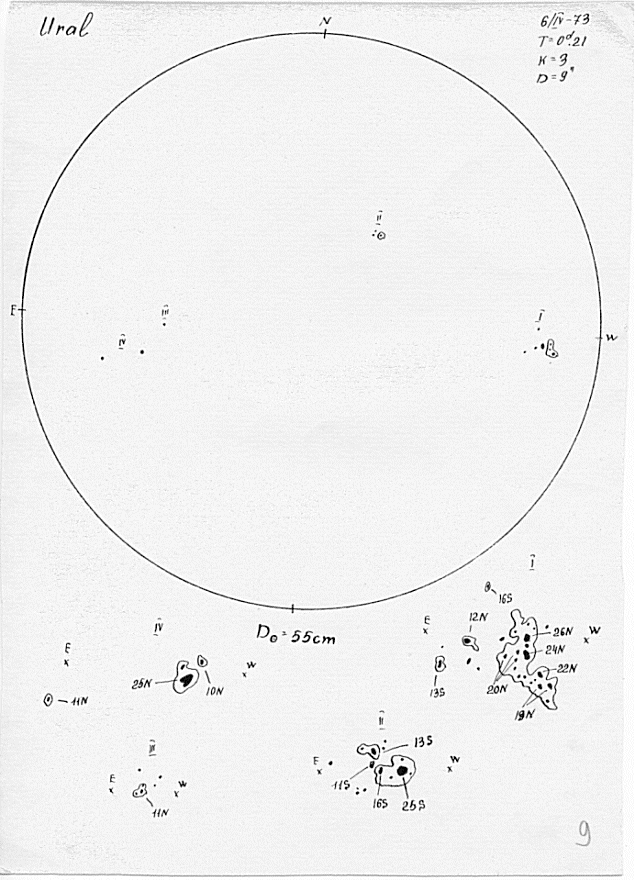 Ural
6/IV-73
T=0ᵈ.21
K=3
D=9"
N
II
E
III
IV
I
W
D₀=55cm
I
16S
12N
E
26N
W
24N
22N
13S
20N
19N
IV
E
W
25N
10N
11N
II
13S
E
W
11S
16S
25S
III
E
W
11N
9